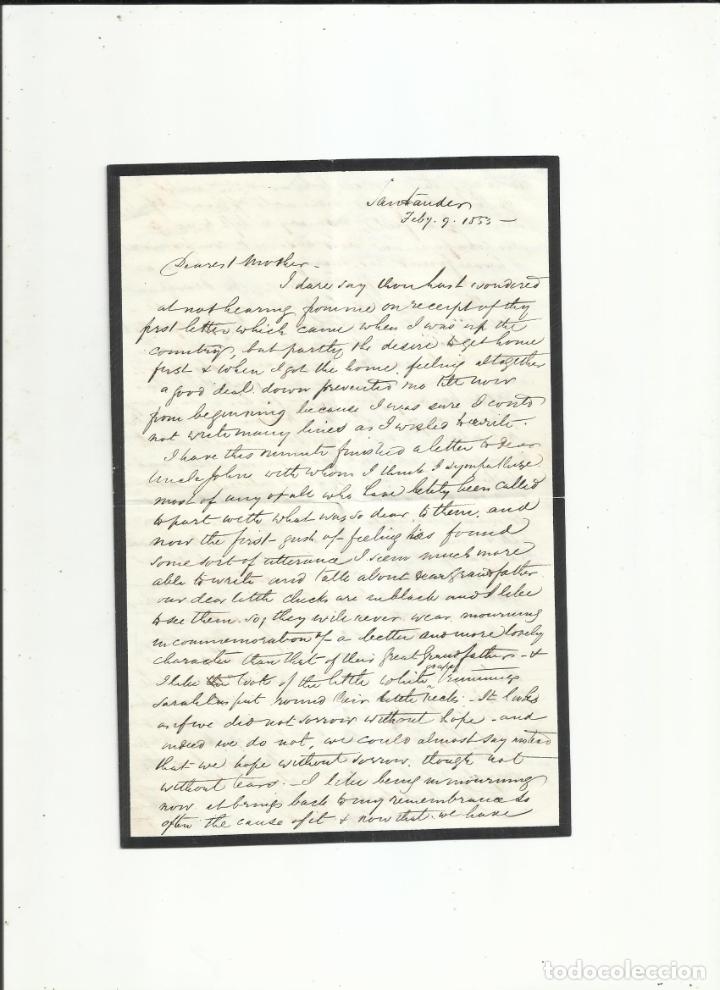 Santander
Feby. 9. 1853 —
Dearest Mother —
I dare say thou hast wondered
at not hearing from me on receipt of thy
first letter which came when I was up the
country, but partly the desire to get home
first & when I got the home feeling altogether
a good deal down prevented me till now
from beginning because I was sure I could
not write many lines as I wished to write.
I have this minute finished a letter to dear
Uncle John with whom I think I sympathize
most of any of all who have lately been called
to part with what was so dear to them, and
now the first gush of feeling has found
some sort of utterance I seem much more
able to write and talk about dear Grandfather
our dear little chicks are in black and I like
to see them so, they will never wear mourning
in commemoration of a better and more lovely
character than that of their great Grandfathers - &
I like the look of the little white crape trimmings
Sarah has put round their little necks - It looks
as if we did not sorrow without hope - and
indeed we do not, we could almost say instead
that we hope without sorrow, though not
without tears. - I like being in mourning
now it brings back to my remembrance so
often the cause of it & now that we have
todocoleccion